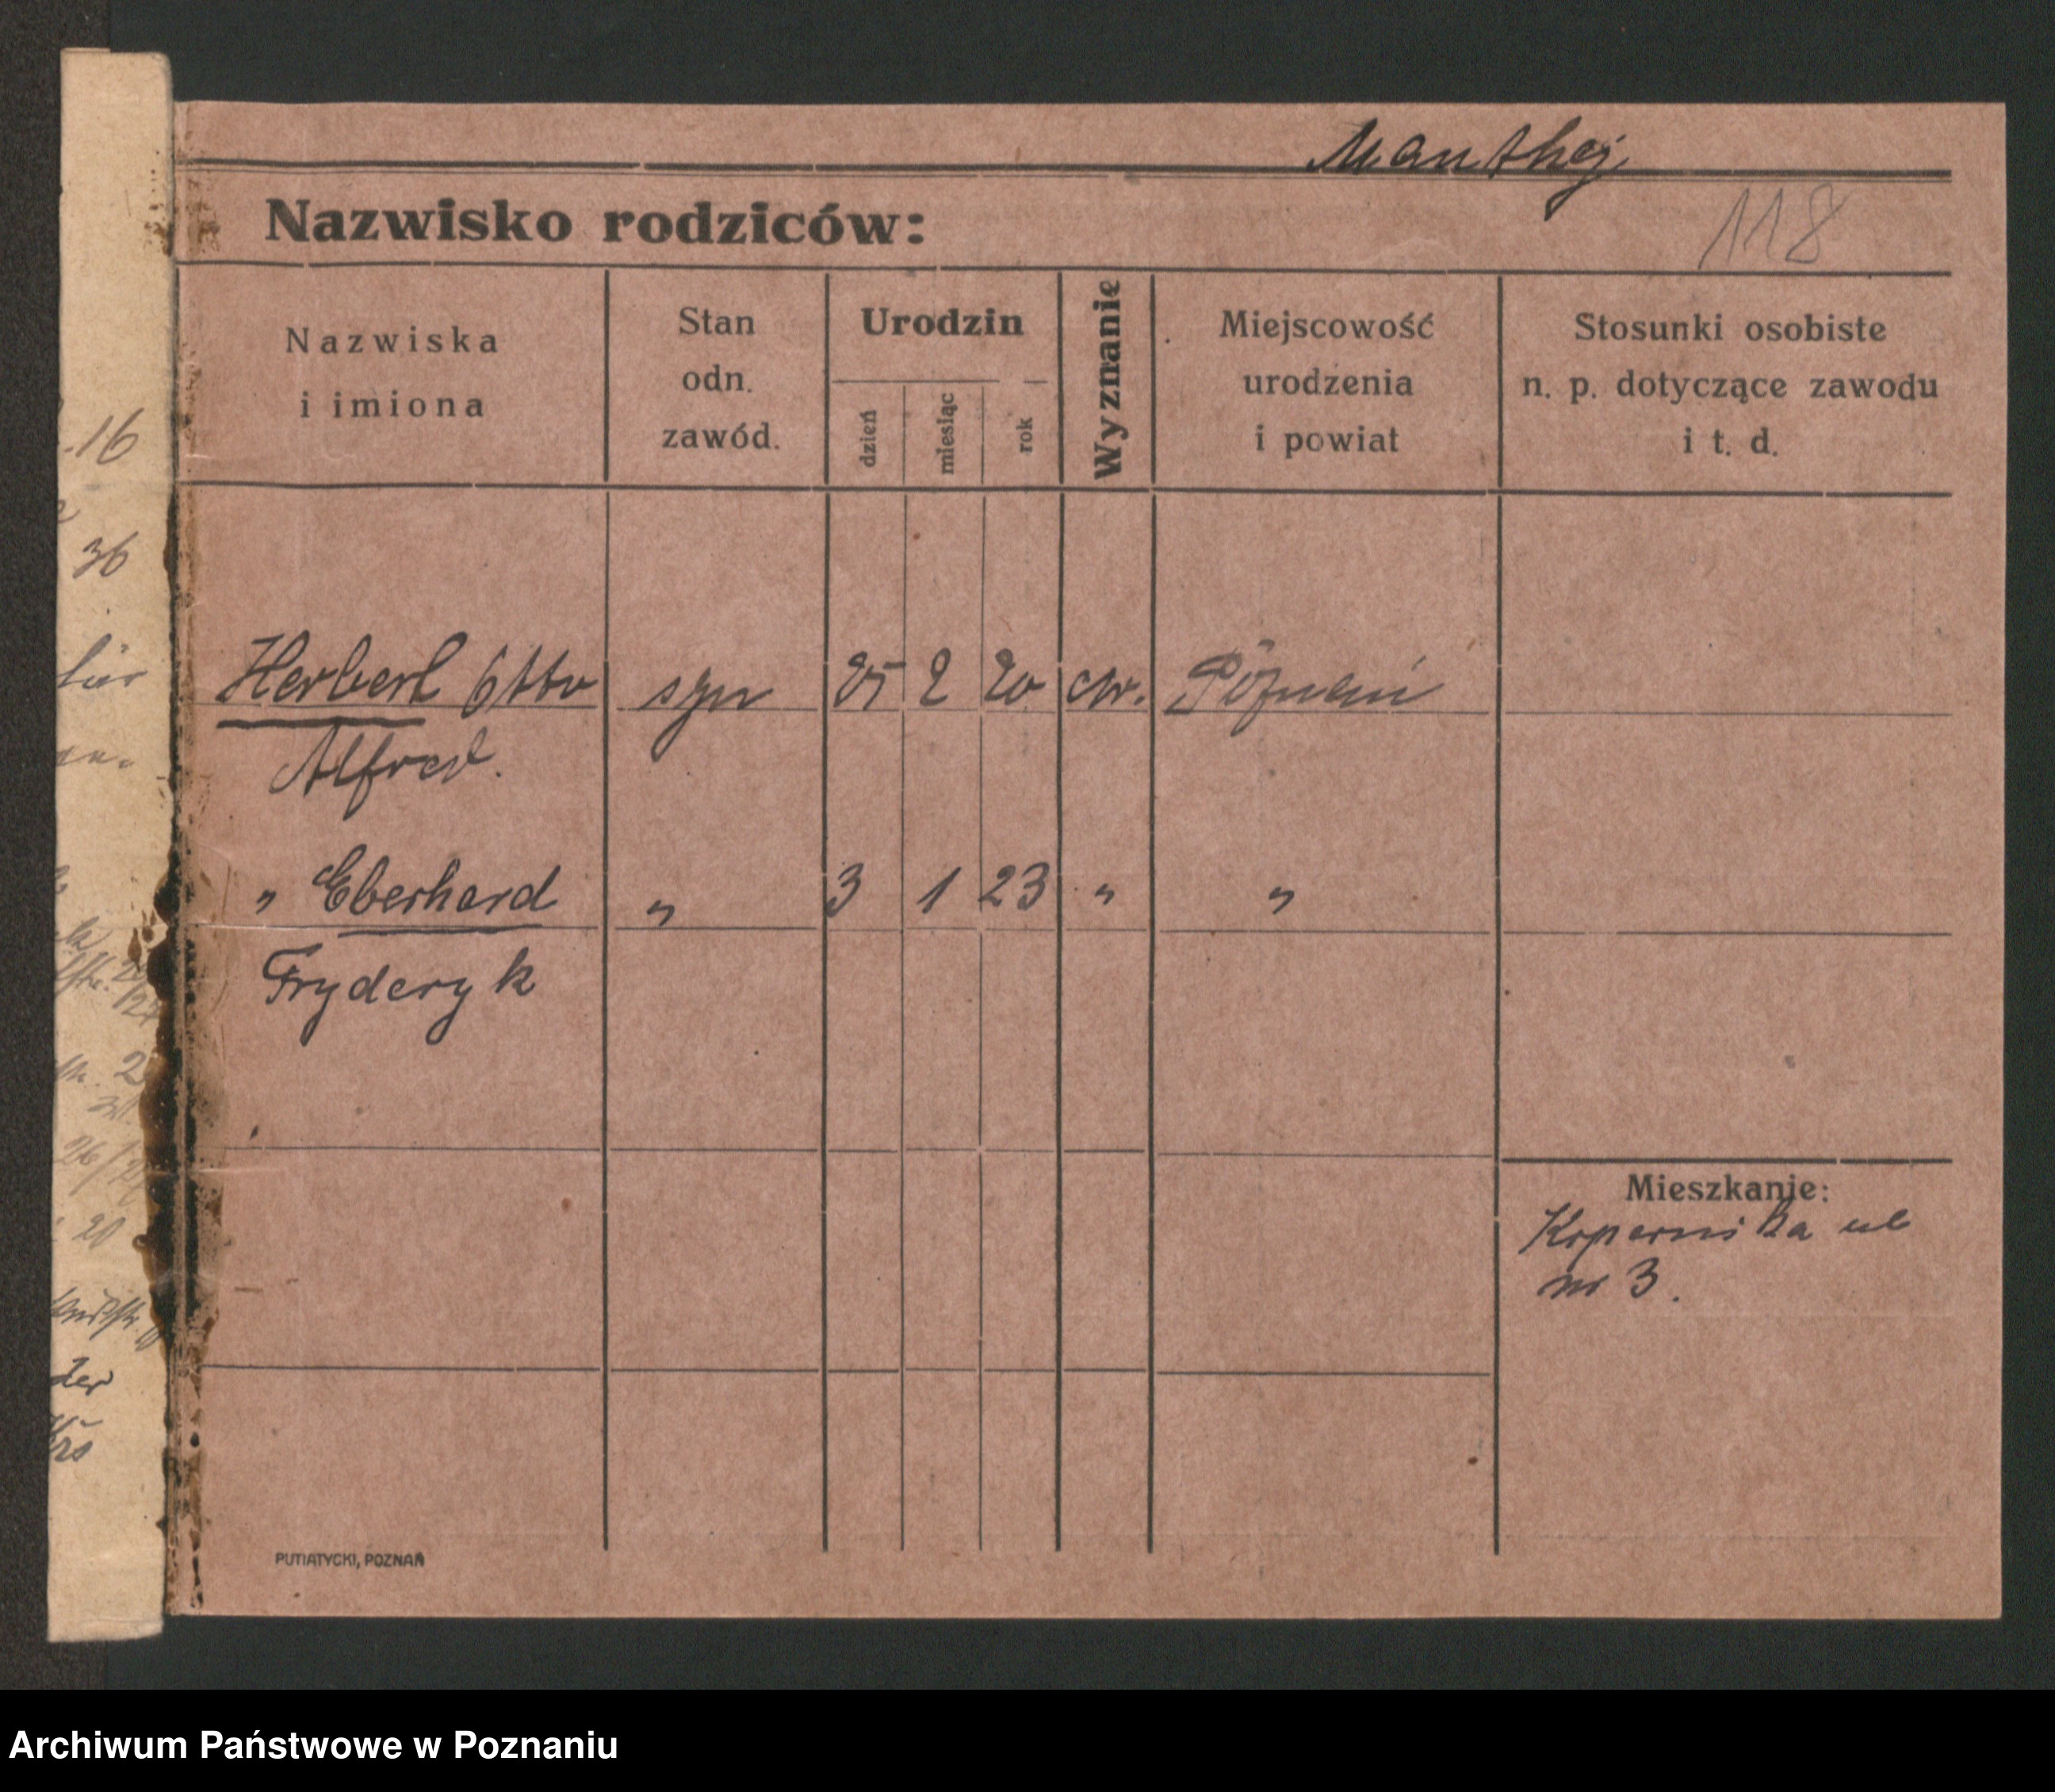 Manthej
118
Nazwisko rodziców:
Nazwiska i imiona
Stan odn. zawód.
Urodzin
dzień miesiąc rok
Wyznanie
Miejscowość urodzenia i powiat
Stosunki osobiste n. p. dotyczące zawodu i t. d.
Herbert Otto syn 25 2 20 ew. Poznań
Alfred.
" Eberhard " 3 1 23 " "
Fryderyk
Mieszkanie:
Kopernika ul
nr 3.
PUTIATYCKI, POZNAŃ
16
36
für
20
der
Archiwum Państwowe w Poznaniu